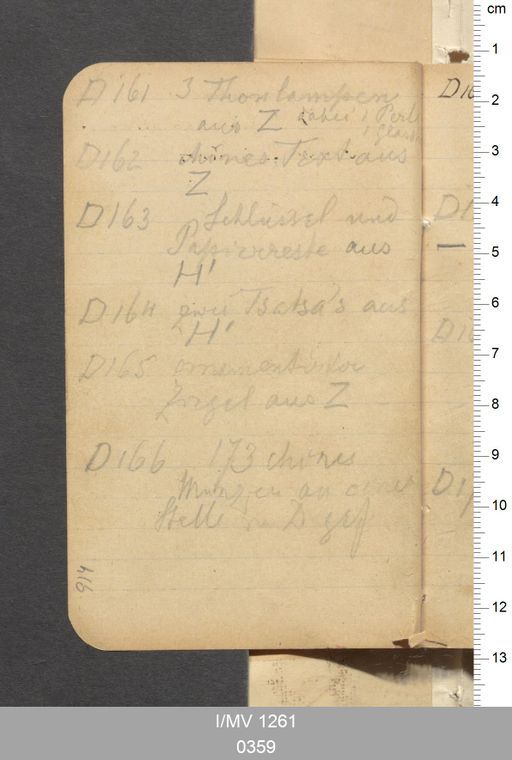 D 161 3 Thonlampen
aus Z dabei 1 Perle
1 Glas
D 162 chines. Text aus
Z
D 163 Schlüssel und
Papierreste aus
H'
D 164 zwei Tsatsa's aus
H'
D 165 ornamentirter
Ziegel aus Z
D 166 173 chines
Münzen an einer
Stelle in D gef
914
cm
1
2
3
4
5
6
7
8
9
10
11
12
13
I/MV 1261
0359